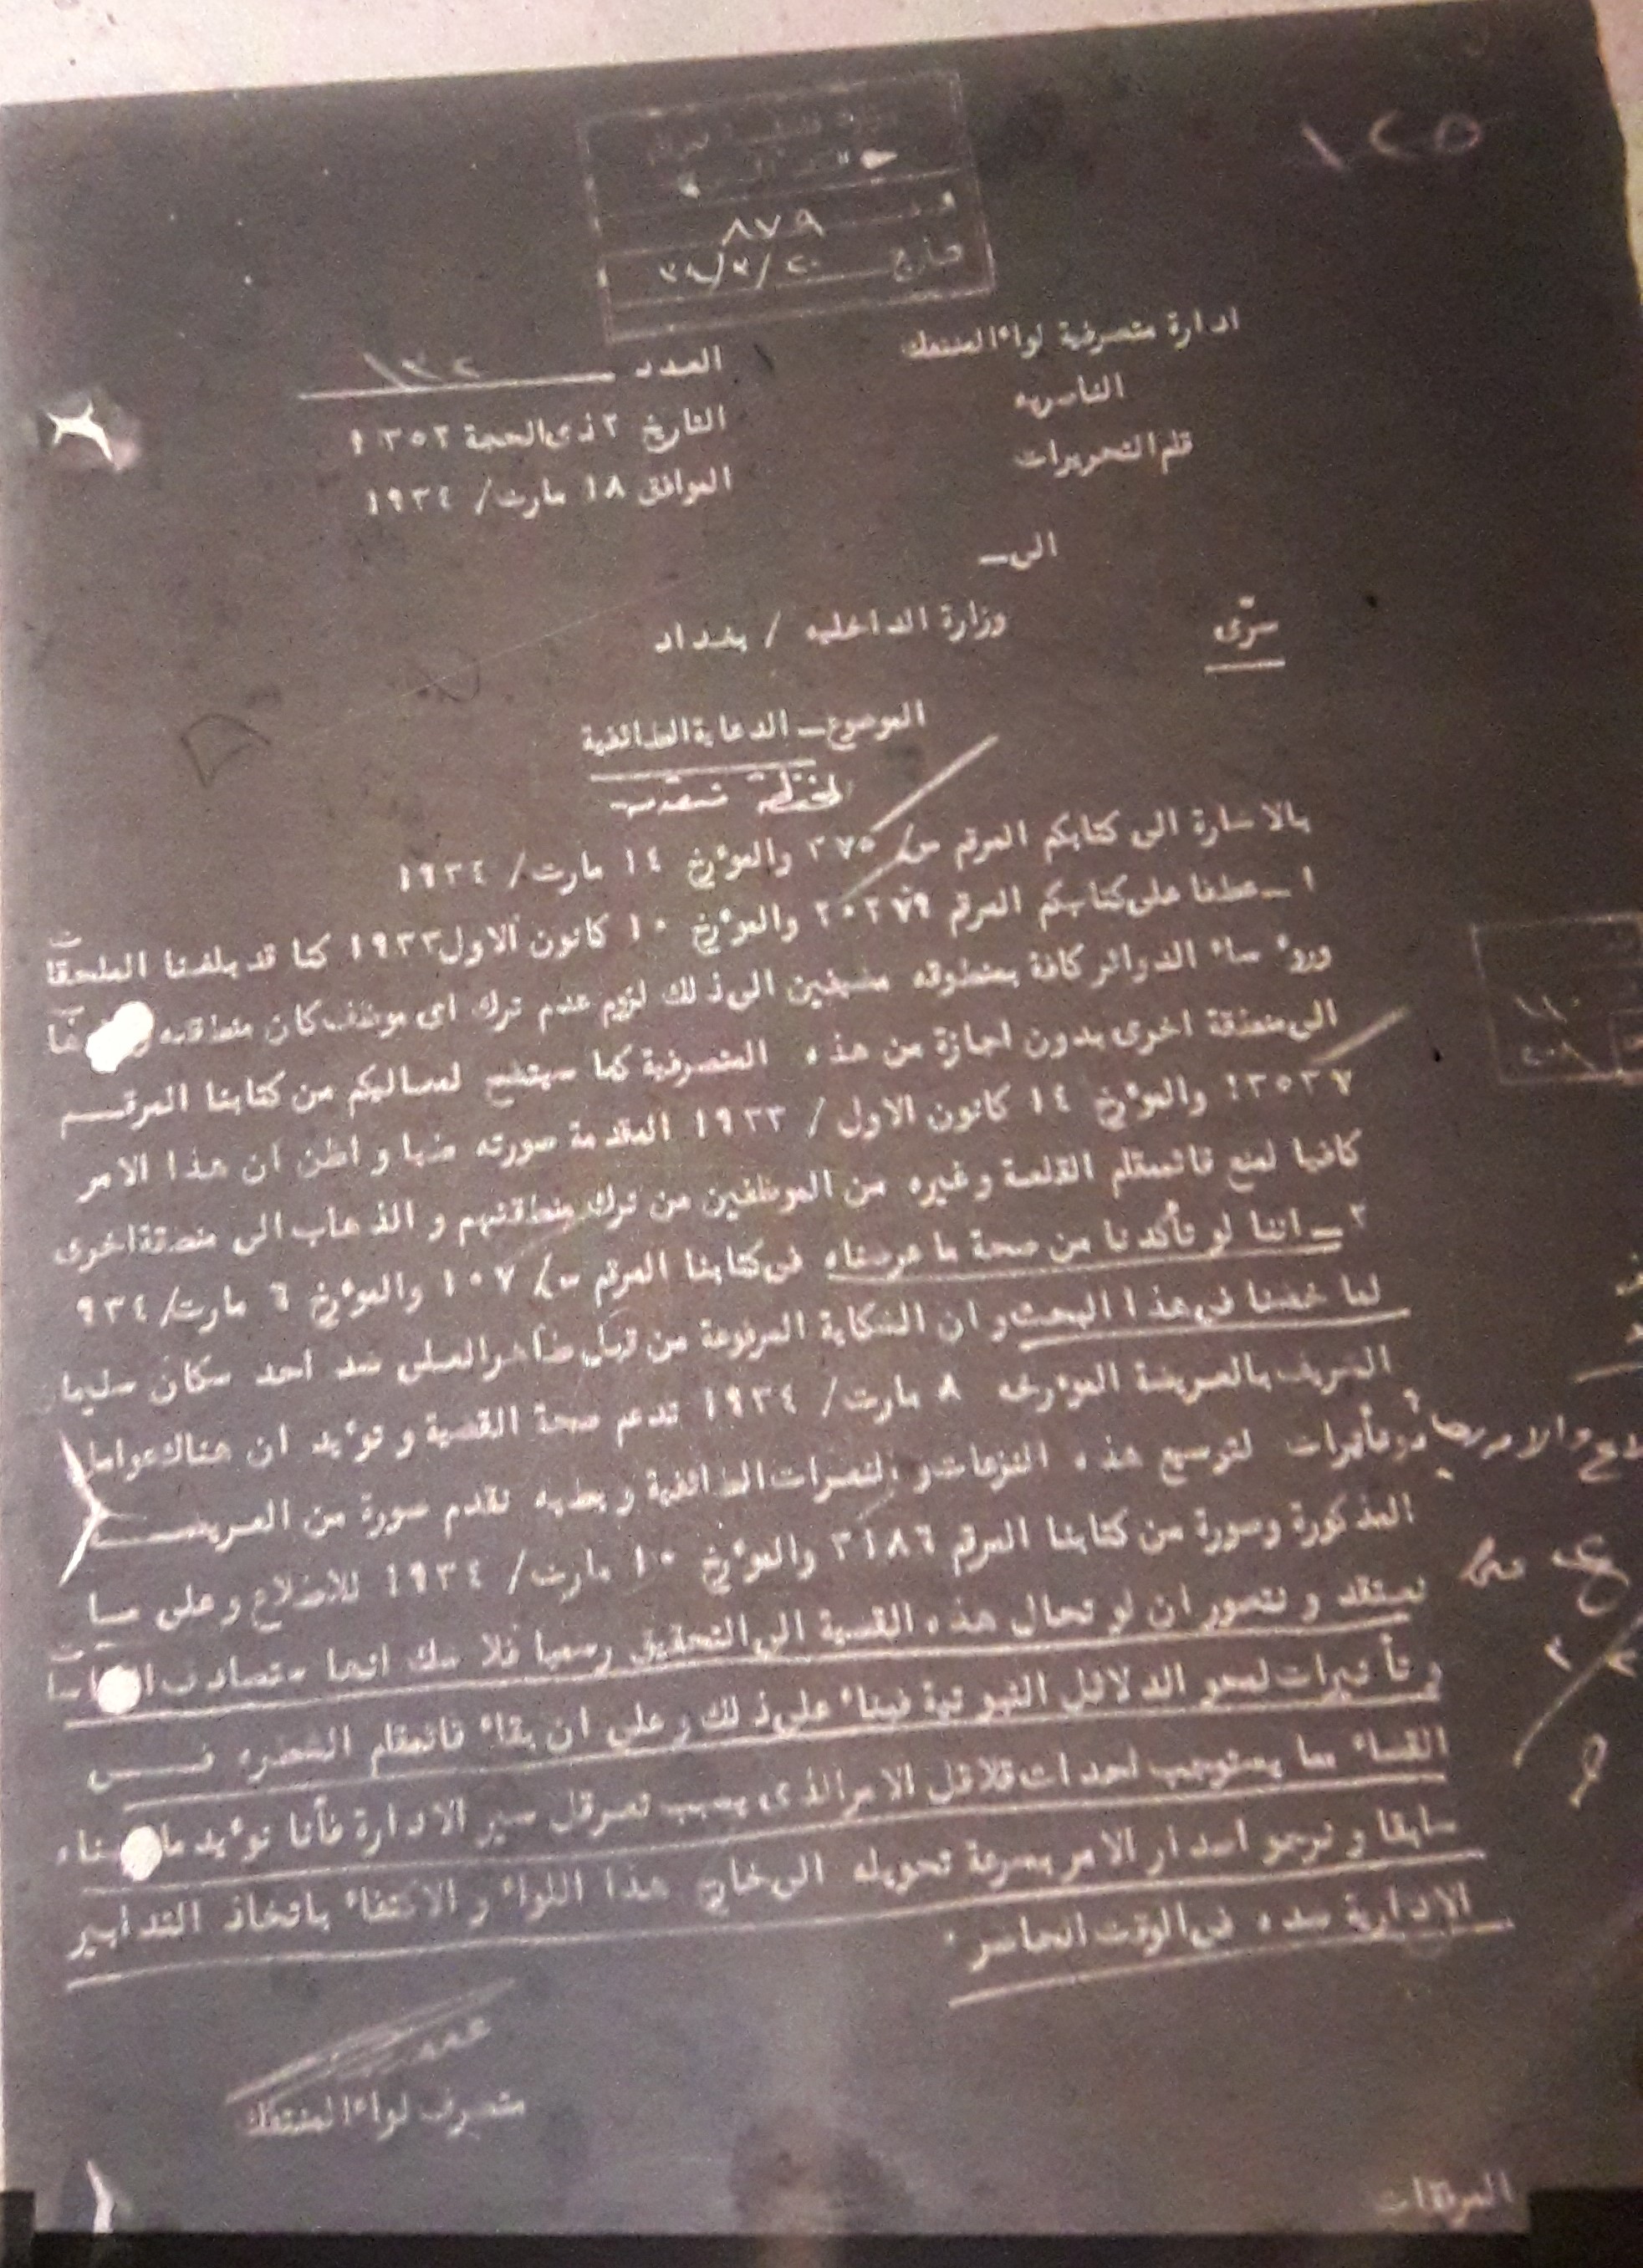 ١٢٥
٨٧٩
تاريخ ٢٠/٣/٣٤
ادارة متصرفية لواء المنتفك
العدد ١٣٢
الناصريه
التاريخ ٢ ذى الحجة ١٣٥٢
قلم التحريرات
الموافق ١٨ مارت/ ١٩٣٤
الى ـــ
سرّى
وزارة الداخليه / بغداد
الموضوع ـ الدعاية الطائفية
بالاشارة الى كتابكم المرقم س/ ٢٧٥ والموءرخ ١٤ مارت/ ١٩٣٤
١ ـ عطفا على كتابكم المرقم ٢٠٢٧٩ والموءرخ ١٠ كانون الاول ١٩٣٣ كنا قد بلغنا الملحقات
وروءساء الدوائر كافة بمنطوقه مضيفين الى ذلك لزوم عدم ترك اى موظف كان منطقته
الى منطقة اخرى بدون اجازة من هذه المتصرفية كما سيتضح لمعاليكم من كتابنا المرقـــم
١٣٥٣٧ والموءرخ ١٤ كانون الاول / ١٩٣٣ المقدمة صورته طيا و اظن ان هذا الامر
كافيا لمنع قائممقام القلعة وغيره من الموظفين من ترك منطقتهم و الذهاب الى منطقة اخرى
٢ ـ اننا لو تأكدنا من صحة ما عرضناه فى كتابنا المرقم س/ ١٠٧ والموءرخ ٦ مارت/ ٩٣٤
لما خضنا فى هذا البحث و ان الشكاية المرفوعة من قبل طاهر العلى ضد احد سكان
بالعريضة ٨ مارت/ ١٩٣٤ تدعم صحة القضية و توءيد ان هناك عوامل
وتأثيرات لتوسيع هذه النزعات و النعرات الطائفية و بطيه نقدم صورة من العريضـــة
المذكورة وصورة من كتابنا المرقم ٣١٨٦ والموءرخ ١٠ مارت/ ١٩٣٤ للاطلاع وعلى مـــا
نعتقد و نتصور ان لو تحال هذه القضية الى التحقيق رسميا فلا شك انها ستصادف
و تأثيرات لمحو الدلائل الثبوتية فبناء على ذلك وعلى ان بقاء قائمقام الشطره فـــى
القضاء مما يستوجب لحدات قلاقل الامر الذى يسبب تعرقل سير الادارة فأنا نوءيد ما
سابقا و نرجو اصدار الامر بسرعة تحويله الى خارج هذا اللواء و الاكتفاء باتخاذ التدابير
الادارية ضده فى الوقت الحاضر ٠
متصرف لواء المنتفك
المرفقات